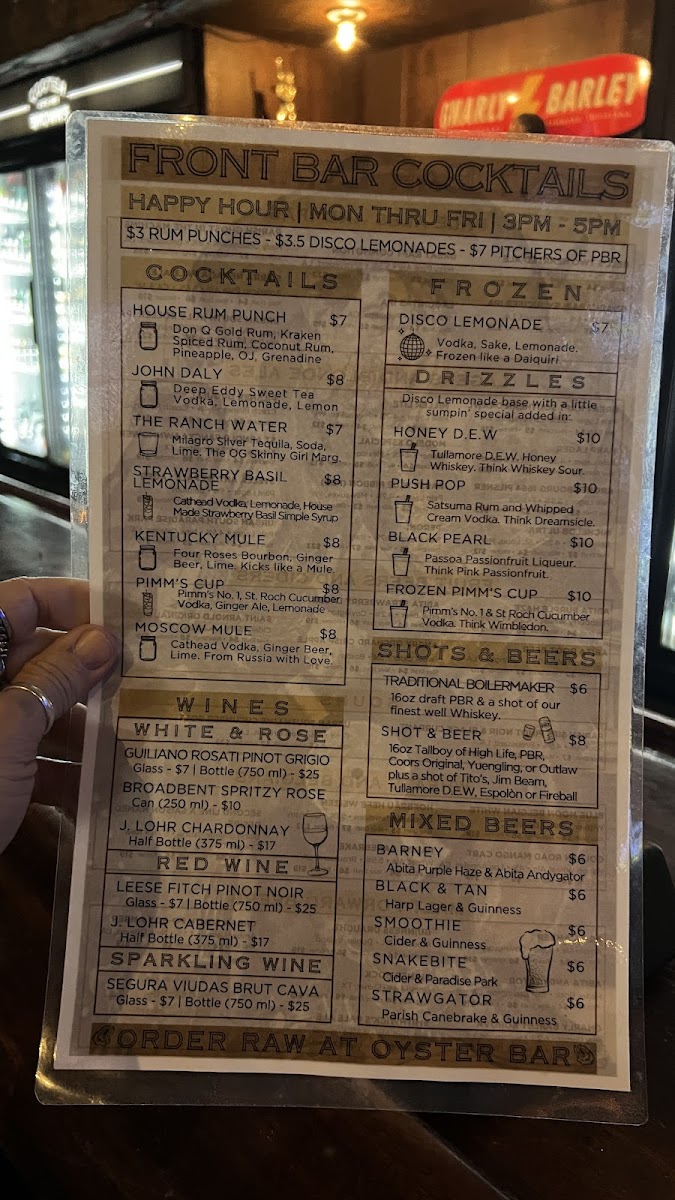 CHARLY BARLEY
FRONT BAR COCKTAILS
HAPPY HOUR | MON THRU FRI | 3PM - 5PM
$3 RUM PUNCHES - $3.5 DISCO LEMONADES - $7 PITCHERS OF PBR
COCKTAILS
HOUSE RUM PUNCH $7
Don Q Gold Rum, Kraken
Spiced Rum, Coconut Rum,
Pineapple, OJ, Grenadine
JOHN DALY $8
Deep Eddy Sweet Tea
Vodka, Lemonade, Lemon
THE RANCH WATER $7
Milagro Silver Tequila, Soda,
Lime. The OG Skinny Girl Marg.
STRAWBERRY BASIL
LEMONADE $8
Cathead Vodka, Lemonade, House
Made Strawberry Basil Simple Syrup
KENTUCKY MULE $8
Four Roses Bourbon, Ginger
Beer, Lime. Kicks like a Mule.
PIMM'S CUP $8
Pimm's No. 1, St. Roch Cucumber
Vodka, Ginger Ale, Lemonade
MOSCOW MULE $8
Cathead Vodka, Ginger Beer,
Lime. From Russia with Love.
WINES
WHITE & ROSE
GUILIANO ROSATI PINOT GRIGIO
Glass - $7 | Bottle (750 ml) - $25
BROADBENT SPRITZY ROSE
Can (250 ml) - $10
J. LOHR CHARDONNAY
Half Bottle (375 ml) - $17
RED WINE
LEESE FITCH PINOT NOIR
Glass - $7 | Bottle (750 ml) - $25
J. LOHR CABERNET
Half Bottle (375 ml) - $17
SPARKLING WINE
SEGURA VIUDAS BRUT CAVA
Glass - $7 | Bottle (750 ml) - $25
FROZEN
DISCO LEMONADE $7
Vodka, Sake, Lemonade.
Frozen like a Daiquiri
DRIZZLES
Disco Lemonade base with a little
sumpin' special added in:
HONEY D.E.W $10
Tullamore D.E.W. Honey
Whiskey. Think Whiskey Sour.
PUSH POP $10
Satsuma Rum and Whipped
Cream Vodka. Think Dreamsicle.
BLACK PEARL $10
Passoa Passionfruit Liqueur.
Think Pink Passionfruit.
FROZEN PIMM'S CUP $10
Pimm's No. 1 & St Roch Cucumber
Vodka. Think Wimbledon.
SHOTS & BEERS
TRADITIONAL BOILERMAKER $6
16oz draft PBR & a shot of our
finest well Whiskey.
SHOT & BEER $8
16oz Tallboy of High Life, PBR,
Coors Original, Yuengling, or Outlaw
plus a shot of Tito's, Jim Beam,
Tullamore D.E.W, Espolòn or Fireball
MIXED BEERS
BARNEY $6
Abita Purple Haze & Abita Andygator
BLACK & TAN $6
Harp Lager & Guinness
SMOOTHIE $6
Cider & Guinness
SNAKEBITE $6
Cider & Paradise Park
STRAWGATOR $6
Parish Canebrake & Guinness
ORDER RAW AT OYSTER BAR